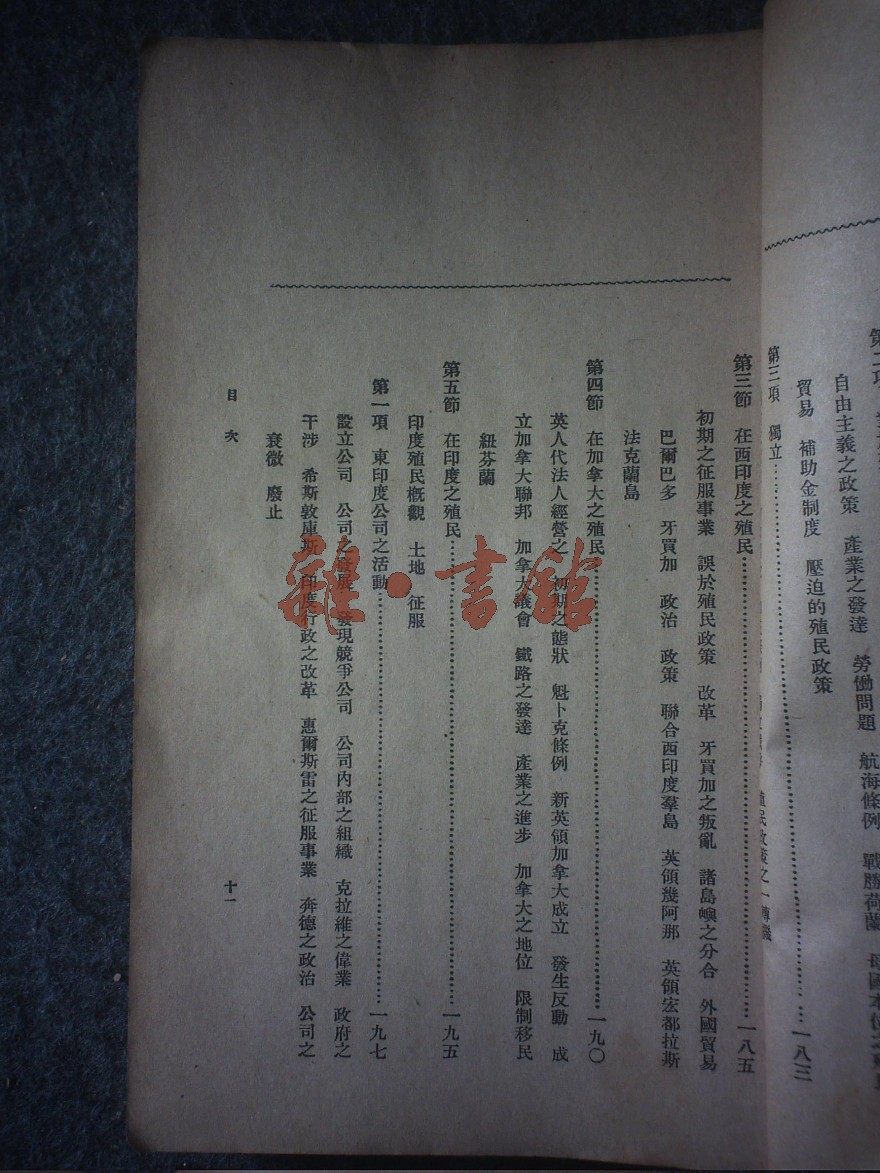 自由主義之政策　產業之發達　勞働問題　航海條例　戰勝荷蘭
貿易　補助金制度　壓迫的殖民政策
第三項　獨立……一八三
第三節　在西印度之殖民……一八五
初期之征服事業　誤於殖民政策　改革　牙買加之叛亂　諸島嶼之分合　外國貿易
巴爾巴多　牙買加　政治　政策　聯合西印度羣島　英領幾阿那　英領宏都拉斯
法克蘭島
第四節　在加拿大之殖民……一九〇
英人代法人經營之　初期之態狀　魁卜克條例　新英領加拿大成立　發生反動　成
立加拿大聯邦　加拿大議會　鐵路之發達　產業之進步　加拿大之地位　限制移民
紐芬蘭
第五節　在印度之殖民……一九五
印度殖民概觀　土地　征服
第一項　東印度公司之活動……一九七
設立公司　公司之發展　發現競爭公司　公司內部之組織　克拉維之偉業　政府之
干涉　希斯敦庫斯　印度行政之改革　惠爾斯雷之征服事業　奔德之政治　公司之
衰微　廢止
目次
十一
雜·書館